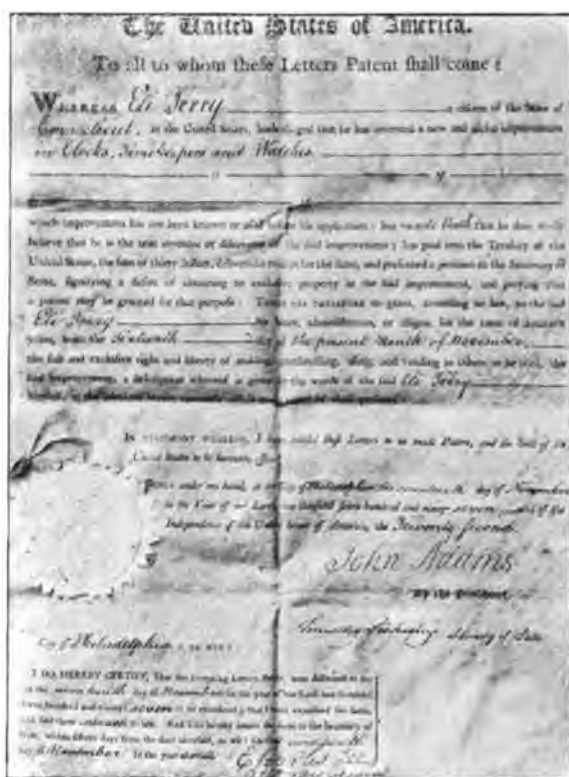 The United States of America.
To all to whom these Letters Patent shall come :
WHEREAS Eli Terry a citizen of the State of
Connecticut, in the United States, hath alleged that he has invented a new and useful improvement
in Clocks, Timekeepers and Watches
which improvement has not been known or used before his application; has made Oath that he does verily
believe that he is the true inventor or discoverer of the said improvement; has paid into the Treasury of the
United States, the sum of thirty dollars, delivered a receipt for the same, and presented a petition to the Secretary of
State, signifying a desire of obtaining an exclusive property in the said improvement, and praying that
a patent may be granted for that purpose: THESE ARE THEREFORE to grant, according to law, to the said
Eli Terry his heirs, administrators, or assigns, for the term of fourteen
years, from the day of the present Month of November,
the full and exclusive right and liberty of making, constructing, using, and vending to others to be used, the
said improvement, a description whereof is given in the words of the said Eli Terry
IN TESTIMONY WHEREOF, I have caused these Letters to be made Patent, and the Seal of the
United States to be hereunto affixed.
GIVEN under my hand, at the City of Philadelphia this day of November
in the Year of our Lord one thousand seven hundred and ninety seven and of the
Independence of the United States of America, the Twenty Second.
John Adams
By the President
Timothy Pickering Secretary of State
City of Philadelphia TO WIT:
I DO HEREBY CERTIFY, That the foregoing Letters Patent, were delivered to me
day of November in the year of our Lord one thousand
seven hundred and ninety seven to be examined; that I have examined the same,
and find them conformable to law. And I do hereby return the same to the Secretary of
State, within fifteen days from the date aforesaid, to wit:
day of November in the year aforesaid.